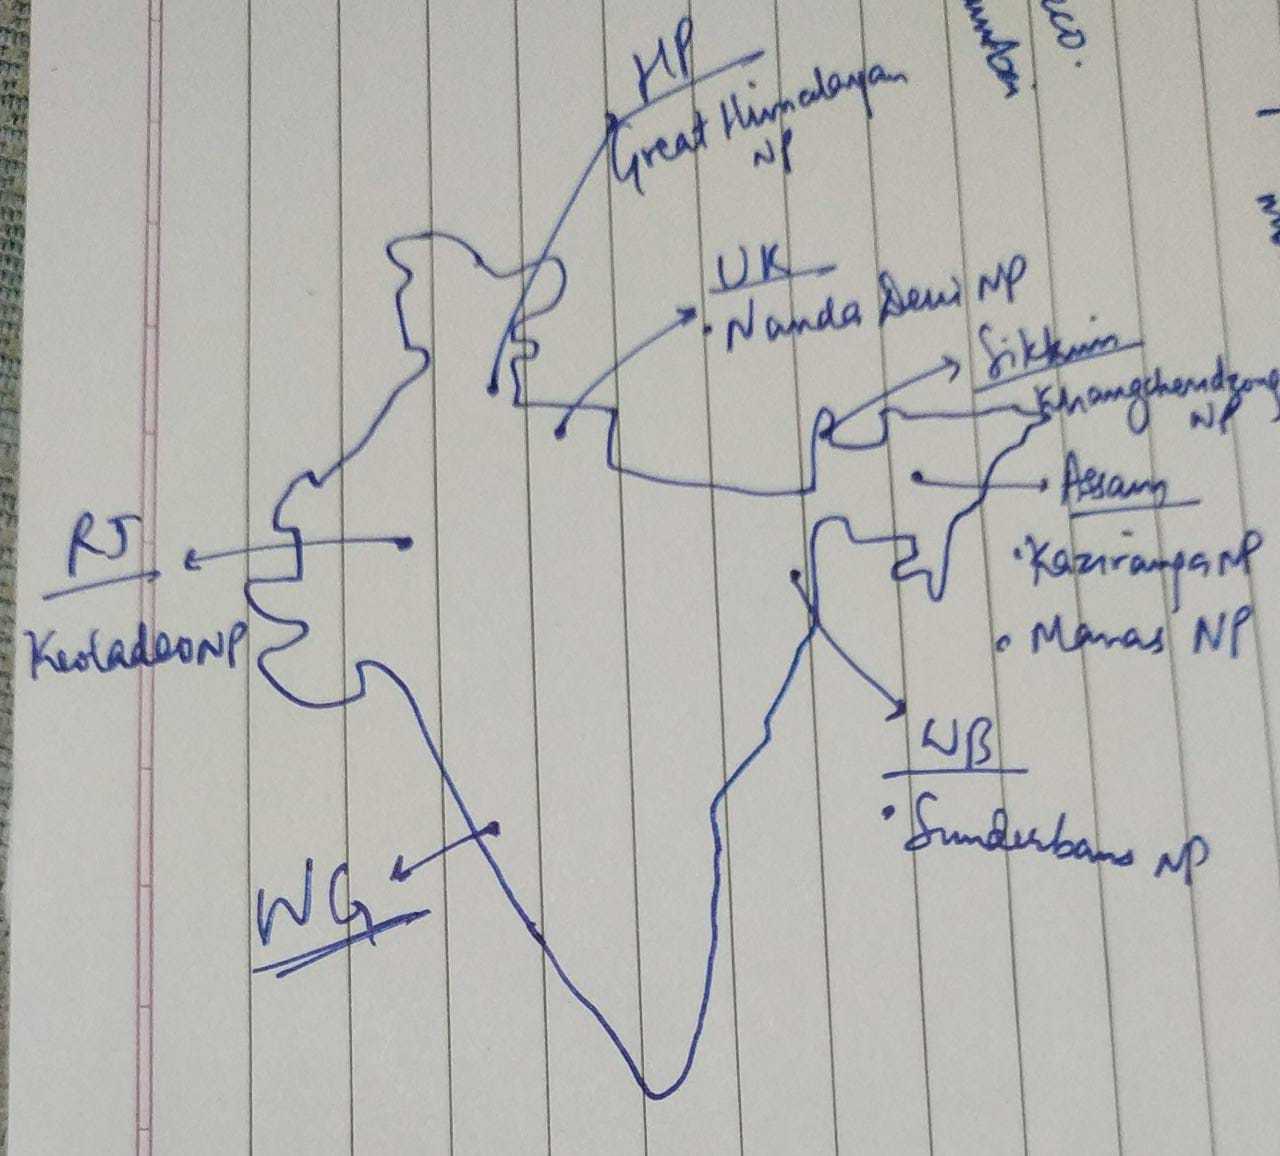 eco.
HP
Great Himalayan
NP
UK
• Nanda Devi NP
Sikkim
Khangchendzong
NP
Assam
• Kaziranga NP
• Manas NP
RJ
Keoladeo NP
WB
• Sunderbans NP
WG